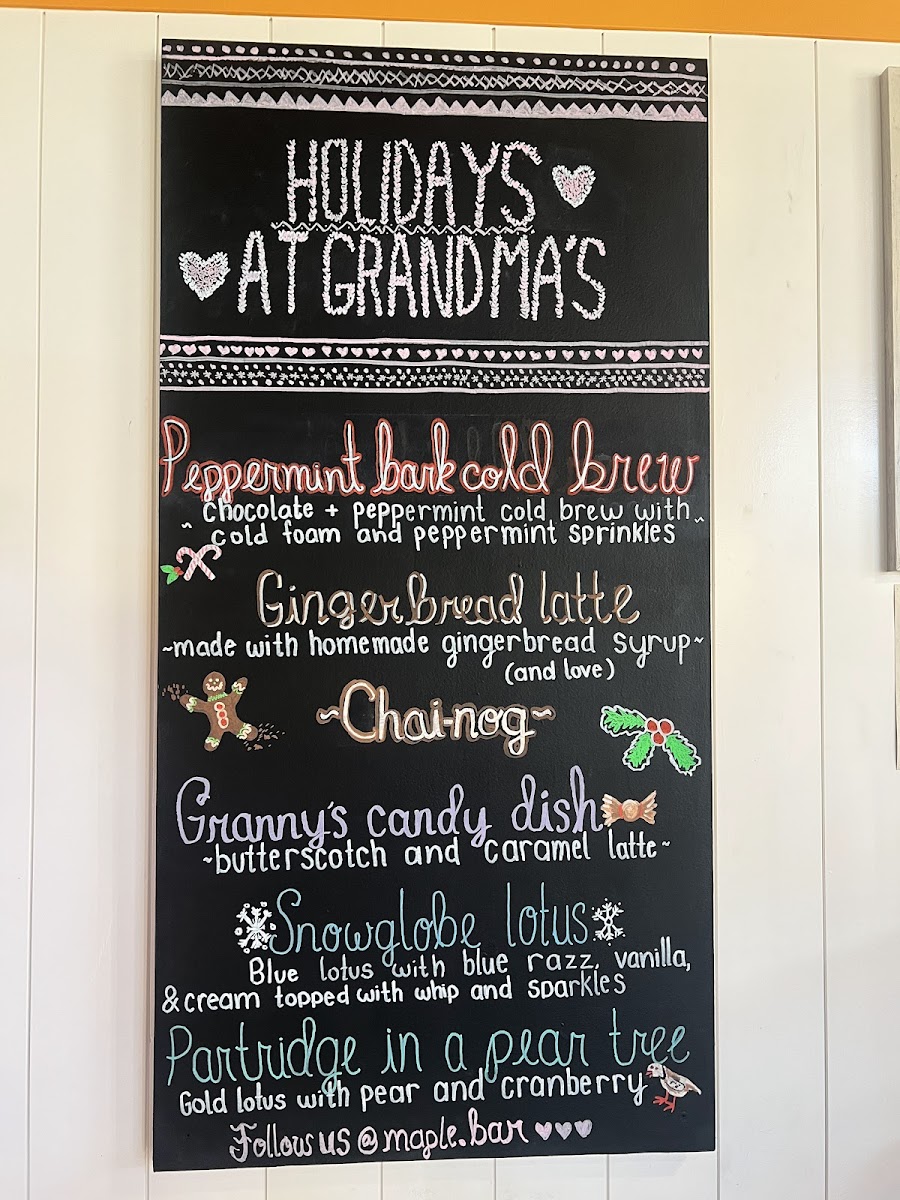 HOLIDAYS
AT GRANDMA'S
Peppermint bark cold brew
~ chocolate + peppermint cold brew with ~
cold foam and peppermint sprinkles
Gingerbread latte
~made with homemade gingerbread syrup~
(and love)
~Chai-nog~
Granny's candy dish
~butterscotch and caramel latte~
Snowglobe lotus
Blue lotus with blue razz, vanilla,
& cream topped with whip and sparkles
Partridge in a pear tree
Gold lotus with pear and cranberry
Follow us @maple.bar